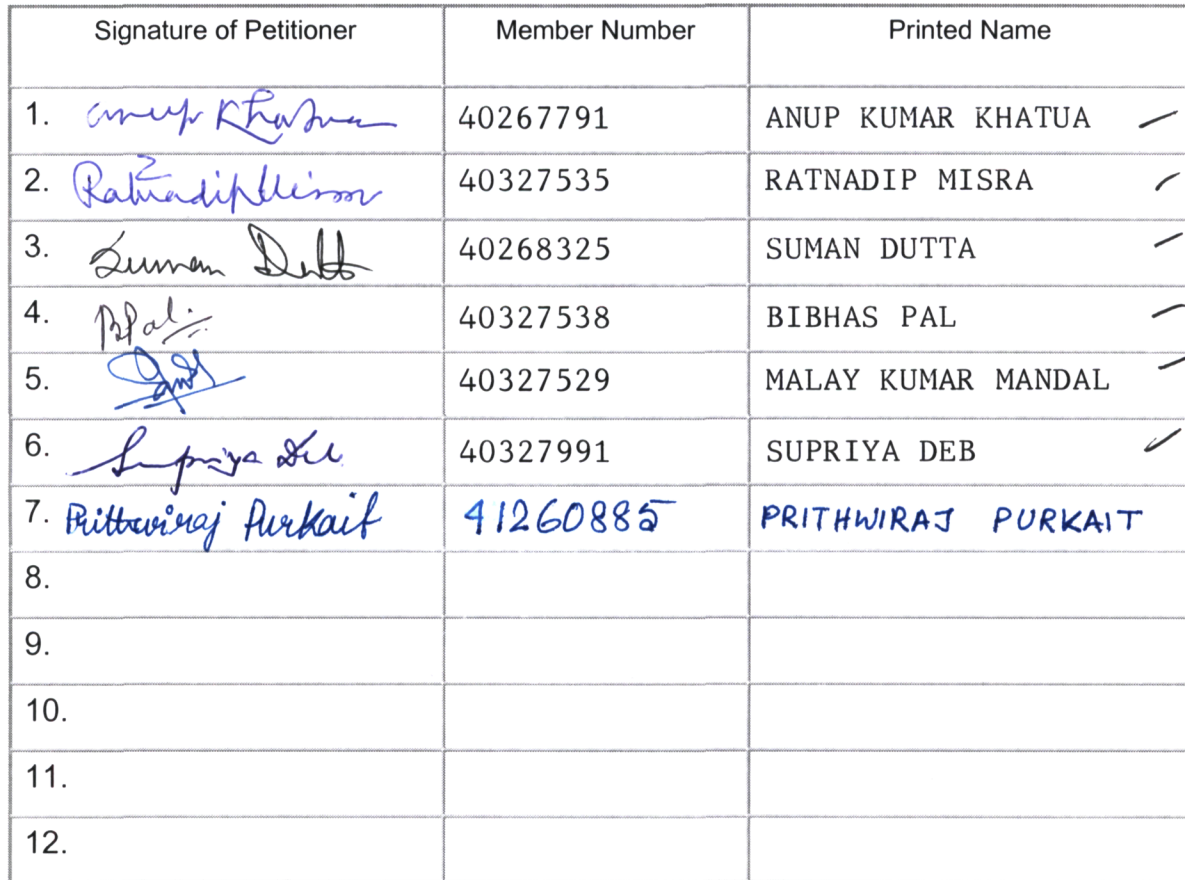 Signature of Petitioner Member Number Printed Name
1. Anup Khatua 40267791 ANUP KUMAR KHATUA
2. Ratnadip Misra 40327535 RATNADIP MISRA
3. Suman Dutta 40268325 SUMAN DUTTA
4. BPal. 40327538 BIBHAS PAL
5. 40327529 MALAY KUMAR MANDAL
6. Supriya Deb 40327991 SUPRIYA DEB
7. Prithwiraj Purkait 41260885 PRITHWIRAJ PURKAIT
8.
9.
10.
11.
12.